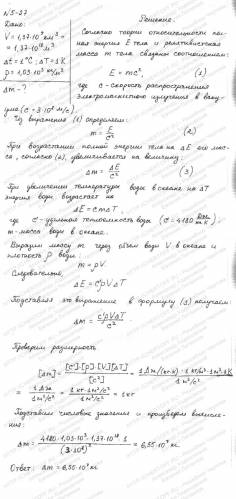 N5-27
Дано:
V = 1,37·10⁹ км³ =
= 1,37·10¹⁸ м³
Δt = 1°C; ΔT = 1К
ρ = 1,03·10³ кг/м³
Δm - ?
Решение.
Согласно теории относительности пол-
ная энергия E тела и релятивистская
масса m тела связаны соотношением:
E = mc², (1)
где c - скорость распространения
электромагнитного излучения в ваку-
уме (c = 3·10⁸ м/с).
Из выражения (1) определяем:
m = E/c² (2)
При возрастании полной энергии тела на ΔE его мас-
са, согласно (2), увеличивается на величину:
Δm = ΔE/c² (3)
При увеличении температуры воды в океане на ΔT
энергия воды возрастает на
ΔE = cmΔT
где c - удельная теплоемкость воды (c = 4180 Дж/кг·К)
m - масса воды в океане.
Выразим массу m через объем воды V в океане и
плотность ρ воды:
m = ρV
Следовательно,
ΔE = cρVΔT
Подставляя это выражение в формулу (3) получаем:
Δm = cρVΔT/c²
Проверим размерность
[Δm] = [c]·[ρ]·[V]·[ΔT]/[c²] = 1 Дж/(кг·К)·1 кг/м³·1м³·1К/1 м²/с² =
= 1 Дж/1 м²/с² = 1 кг·1 м²/с²/1 м²/с² = 1 кг
Подставим числовые значения и произведем вычисле-
ния: